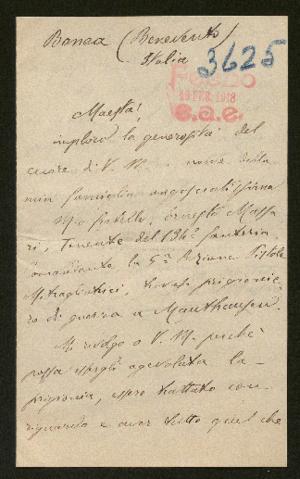 Bonea (Benevento)
Italia
3625
19 FEB. 1918
e.a.e.
Maestà!
imploro la generosità del
cuore di V. M. a nome della
mia famiglia angosciatissima
Mio fratello, Ernesto Massa
ri, Tenente del 136° fanteria
comandante la 5ª Sezione Pistole
Mitragliatrici, trovasi prigionie
ro di guerra a Mauthausen.
Mi rivolgo a V. M. perchè
possa essergli agevolata la
prigionia, essere trattato con
riguardo e aver tutto quel che